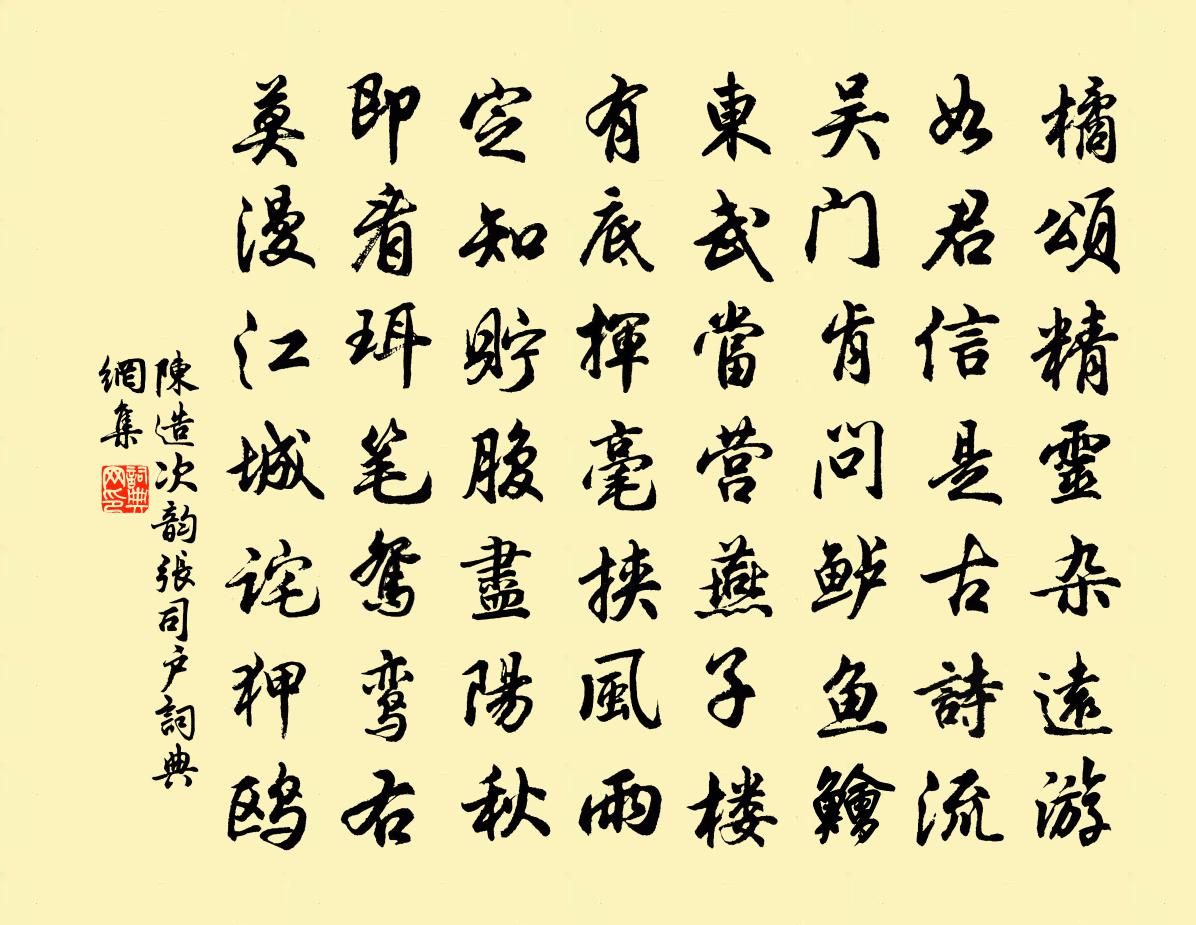 橘頌精靈杂遠游
如君信是古詩流
吴门肯问鲈鱼鱠
東武當营燕子楼
有底揮毫挾風雨
定知貯腹盡陽秋
即看珥笔鸳鸾右
莫漫江城詫狎鸥
陳造次韵張司户詞典
網集
詞典網印